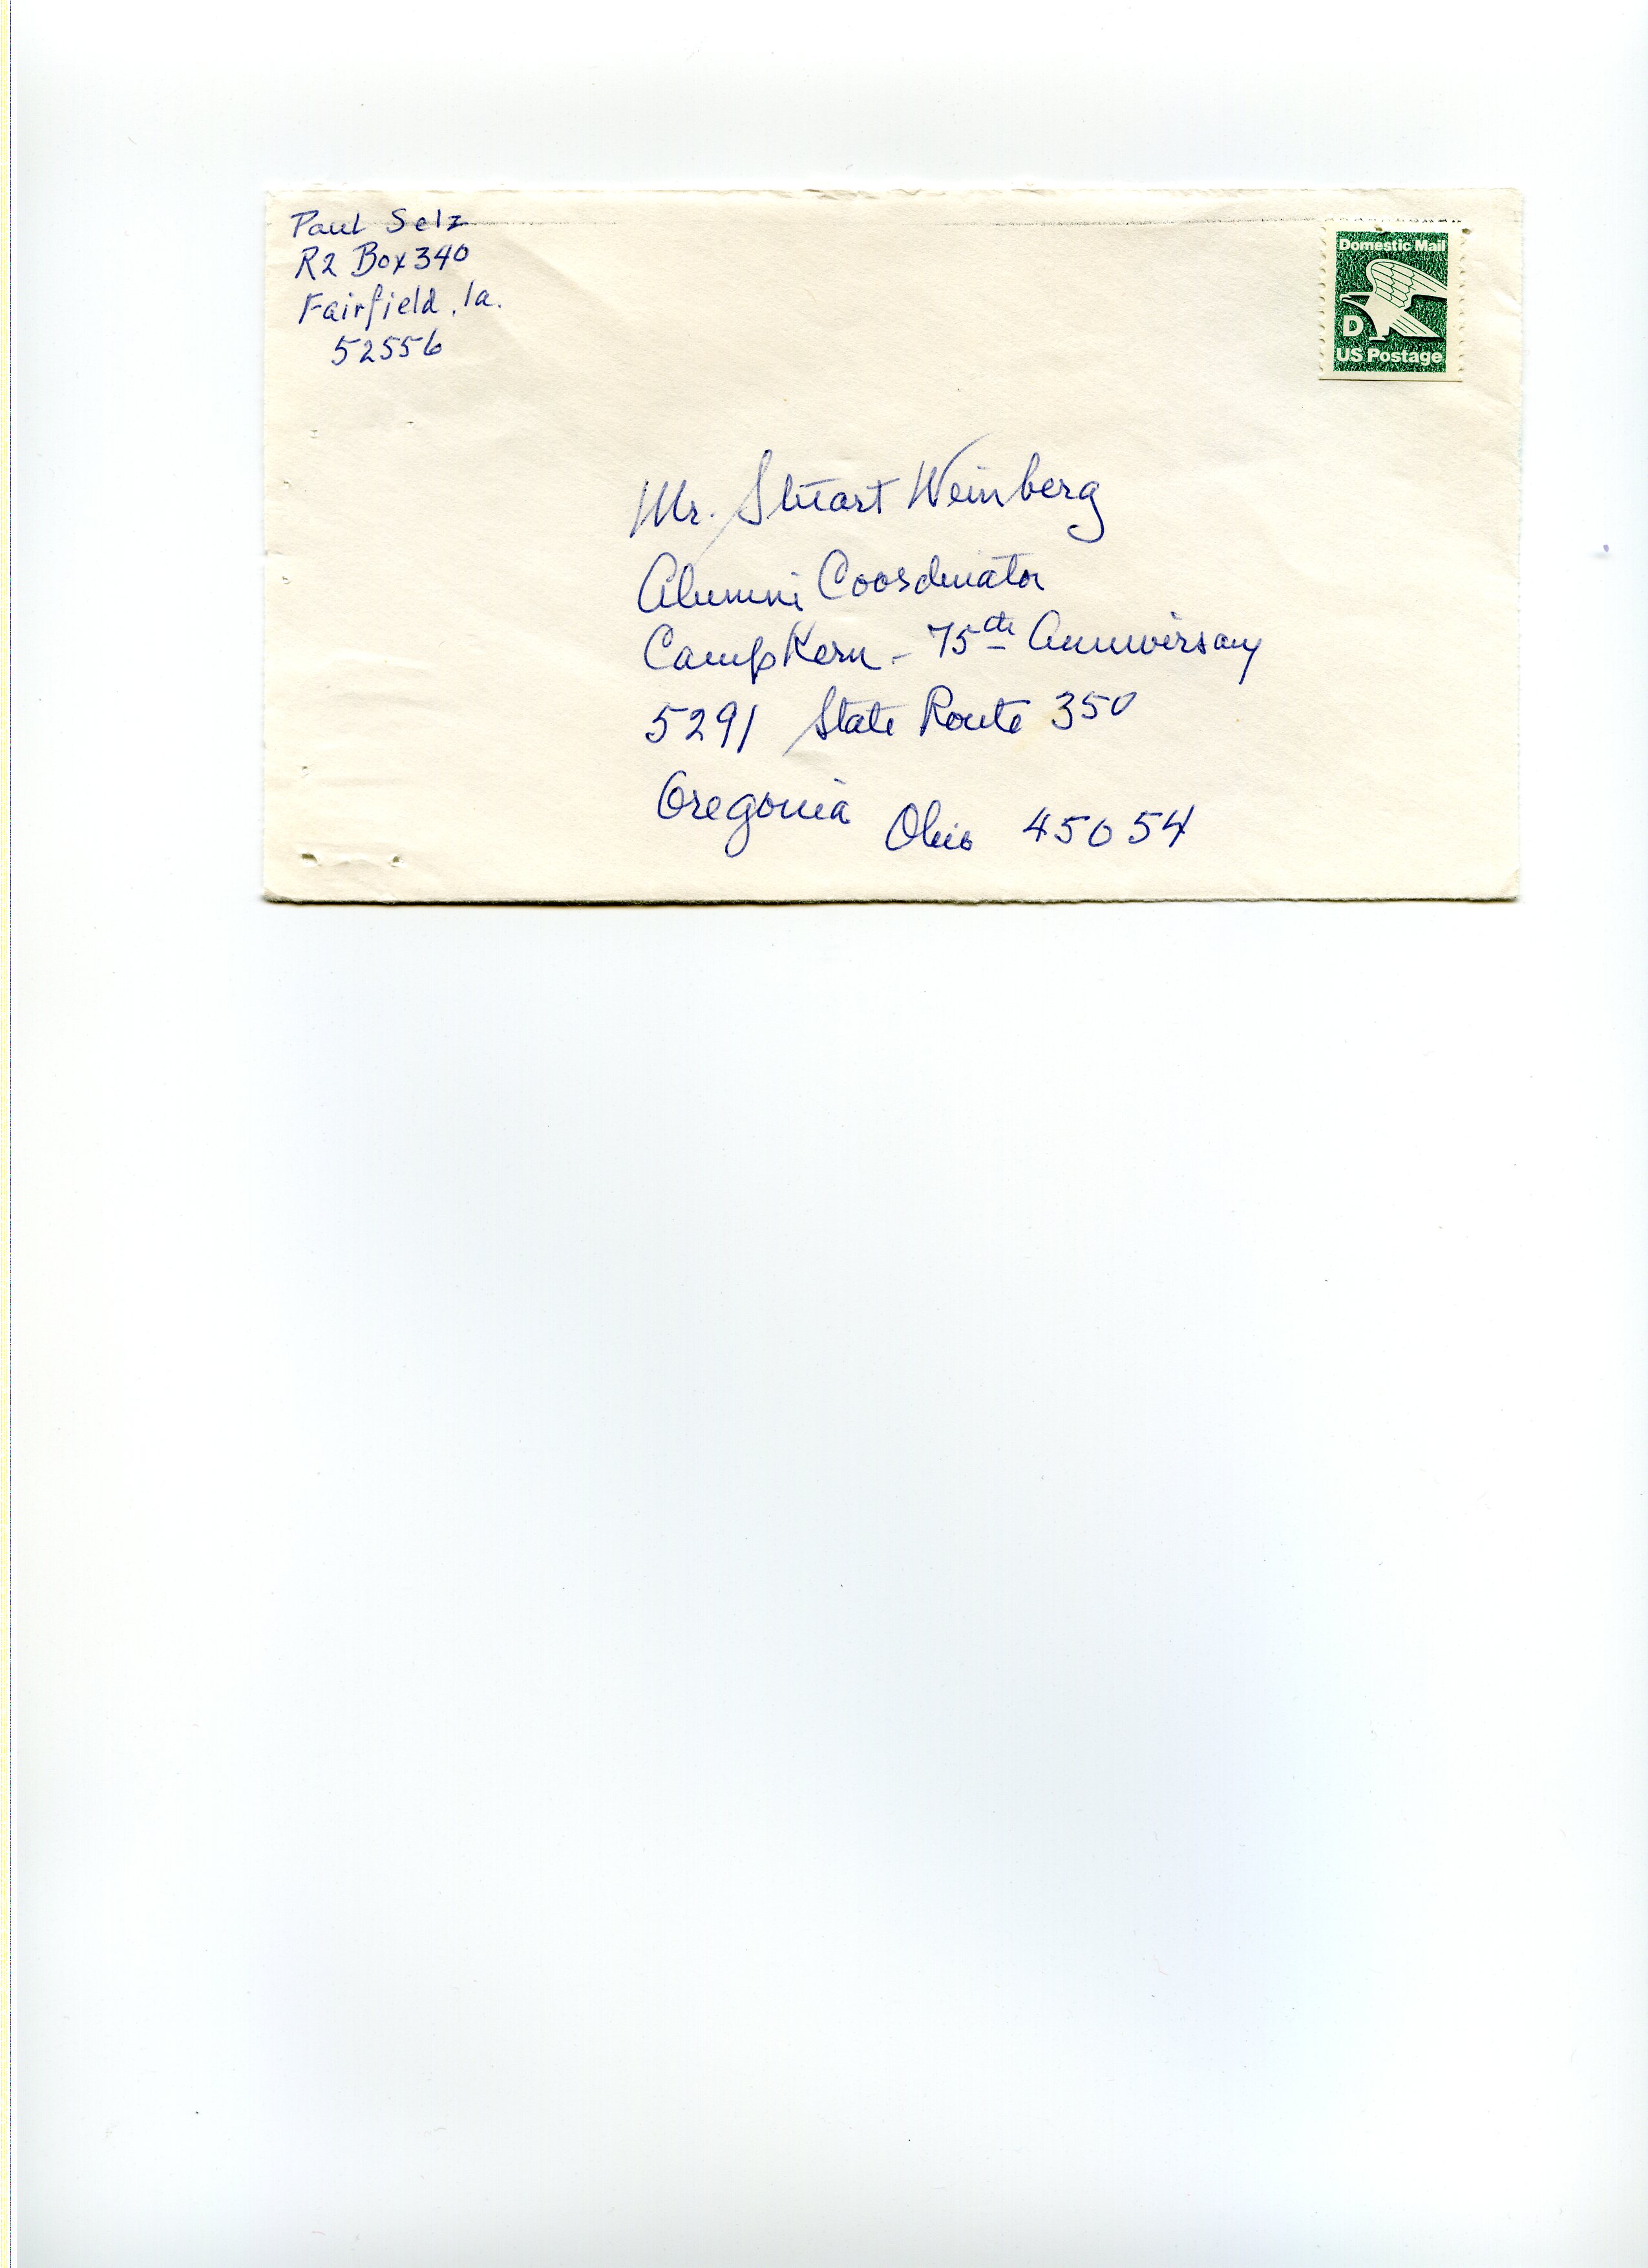 Paul Selz
R2 Box 340
Fairfield, Ia.
52556
Domestic Mail
D
US Postage
Mr. Stuart Weinberg
Alumni Coordinator
Camp Kern - 75th Anniversary
5291 State Route 350
Oregonia Ohio 45054